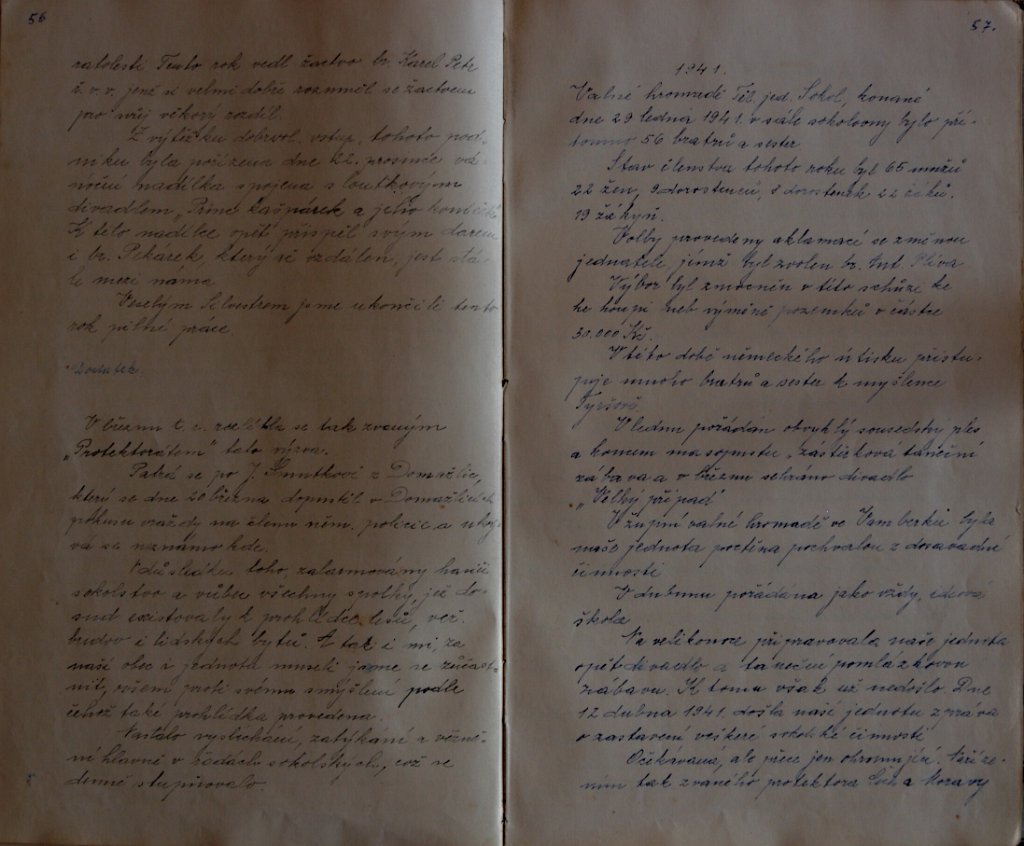 56
ratolesti Tento rok vedl žactvo br. Karel Petr
ž. v. v. jenž si velmi dobře rozuměl se žactvem
pro svůj věkový rozdíl.
Z výtěžku dobrvol. vstup. tohoto pod-
niku byla pořízena dne 22. prosince vá-
noční nadílka spojena s loutkovým
divadlem "Princ Kašpárek a jeho koníček"
K této nadílce opět přispěl svým darem
i br. Pekárek, který ač vzdálen, jest stá-
le mezi námi
Veselým Silvestrem jsme ukončili tento
rok pilné práce
Dodatek.
V březnu t. r. rozlétla se tak zvaným
"Protektorátem" tato výzva.
Pátrá se po J. z Domažlic,
který se dne 20 března dopustil v Domažlicích
pokusu vraždy na členu něm. policie a ukrý-
vá se neznámo kde.
V důsledku toho, zalarmovány hasiči
sokolstvo a vůbec všechny spolky, jež do-
sud existovaly k prohlídce lesů, veř.
budov i lidských bytů. A tak i mi, za
naší obec i jednota museli jsme se zůčast-
nit, ovšem proti svému smýšlení podle
čehož také prohlídka provedena.
Nastalo vyslýchání, zatýkání a vězně-
ní hlavně v řadách sokolských, což se
denně stupňovalo.
57.
1941.
Valné hromadě Těl. jed. Sokol, konané
dne 29 ledna 1941. v sále sokolovny bylo pří-
tomno 56 bratrů a sester
Stav členstva tohoto roku byl 65 mužů
22 žen, 9 dorostenců, 8 dorostenek 22 žáků.
19 žákyň.
Volby provedeny aklamací se změnou
jednatele, jímž byl zvolen br. Ant. Plíva
Výbor byl zmocněn v této schůzi ke
ke koupi neb výměně pozemků v částce
30.000 Kč.
V této době německého útisku přistu-
puje mnoho bratrů a sester k myšlence
Tyršově.
V lednu pořádán obvyklý sousedský ples
a koncem masopustu "zástěrková taneční
zábava a v březnu sehráno divadlo
"Velký případ"
V župní valné hromadě ve Vamberku byla
naše jednota poctěna pochvalou z dosavadní
činnosti
V dubnu pořádána jako vždy, ideová
škola
Na velikonoce připravovala naše jednota
opět divadlo a taneční pomlázkovou
zábavu. K tomu však už nedošlo. Dne
12 dubna 1941. došla naší jednotu zpráva
o zastavení veškeré sokolské činnosti
Očekávaná, ale přece jen ohromující. Naříze-
ním tak zvaného protektora Čech a Moravy